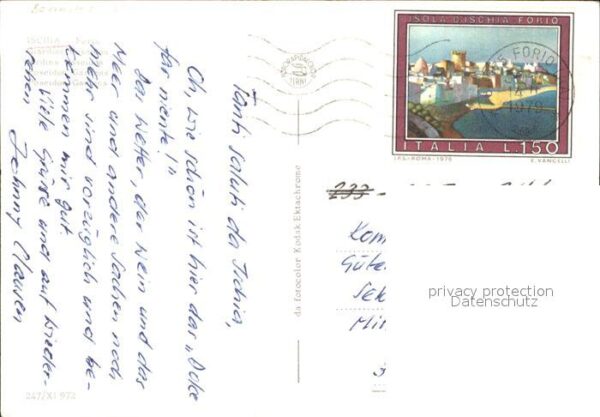 ISCHIA - Forio
Giardini Poseidon
Tanti saluti da Ischia,
Oh, wie schön ist hier das „Dolce
far niente!"
Das Wetter, der Wein und das
Meer und andere Sachen noch
mehr sind vorzüglich und be-
kommen mir gut.
Viele Grüsse und auf Wieder-
sehen
Johnny Clausen
247/XI 972
da fotocolor Kodak Ektachrome
ISOLA D'ISCHIA FORIO
ITALIA L.150
I.P.S.-ROMA-1976
E. VANGELLI
FORIO
1979
233
Kom
Güte
Sek
Min
privacy protection
Datenschutz